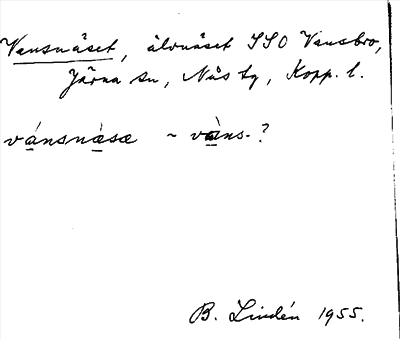 Vansnäset, älvnäset SSO Vansbro,
Järna sn, Nås tg, Kopp. l.
vánsnàsæ ~ vàns-?
B. Lindén 1955.